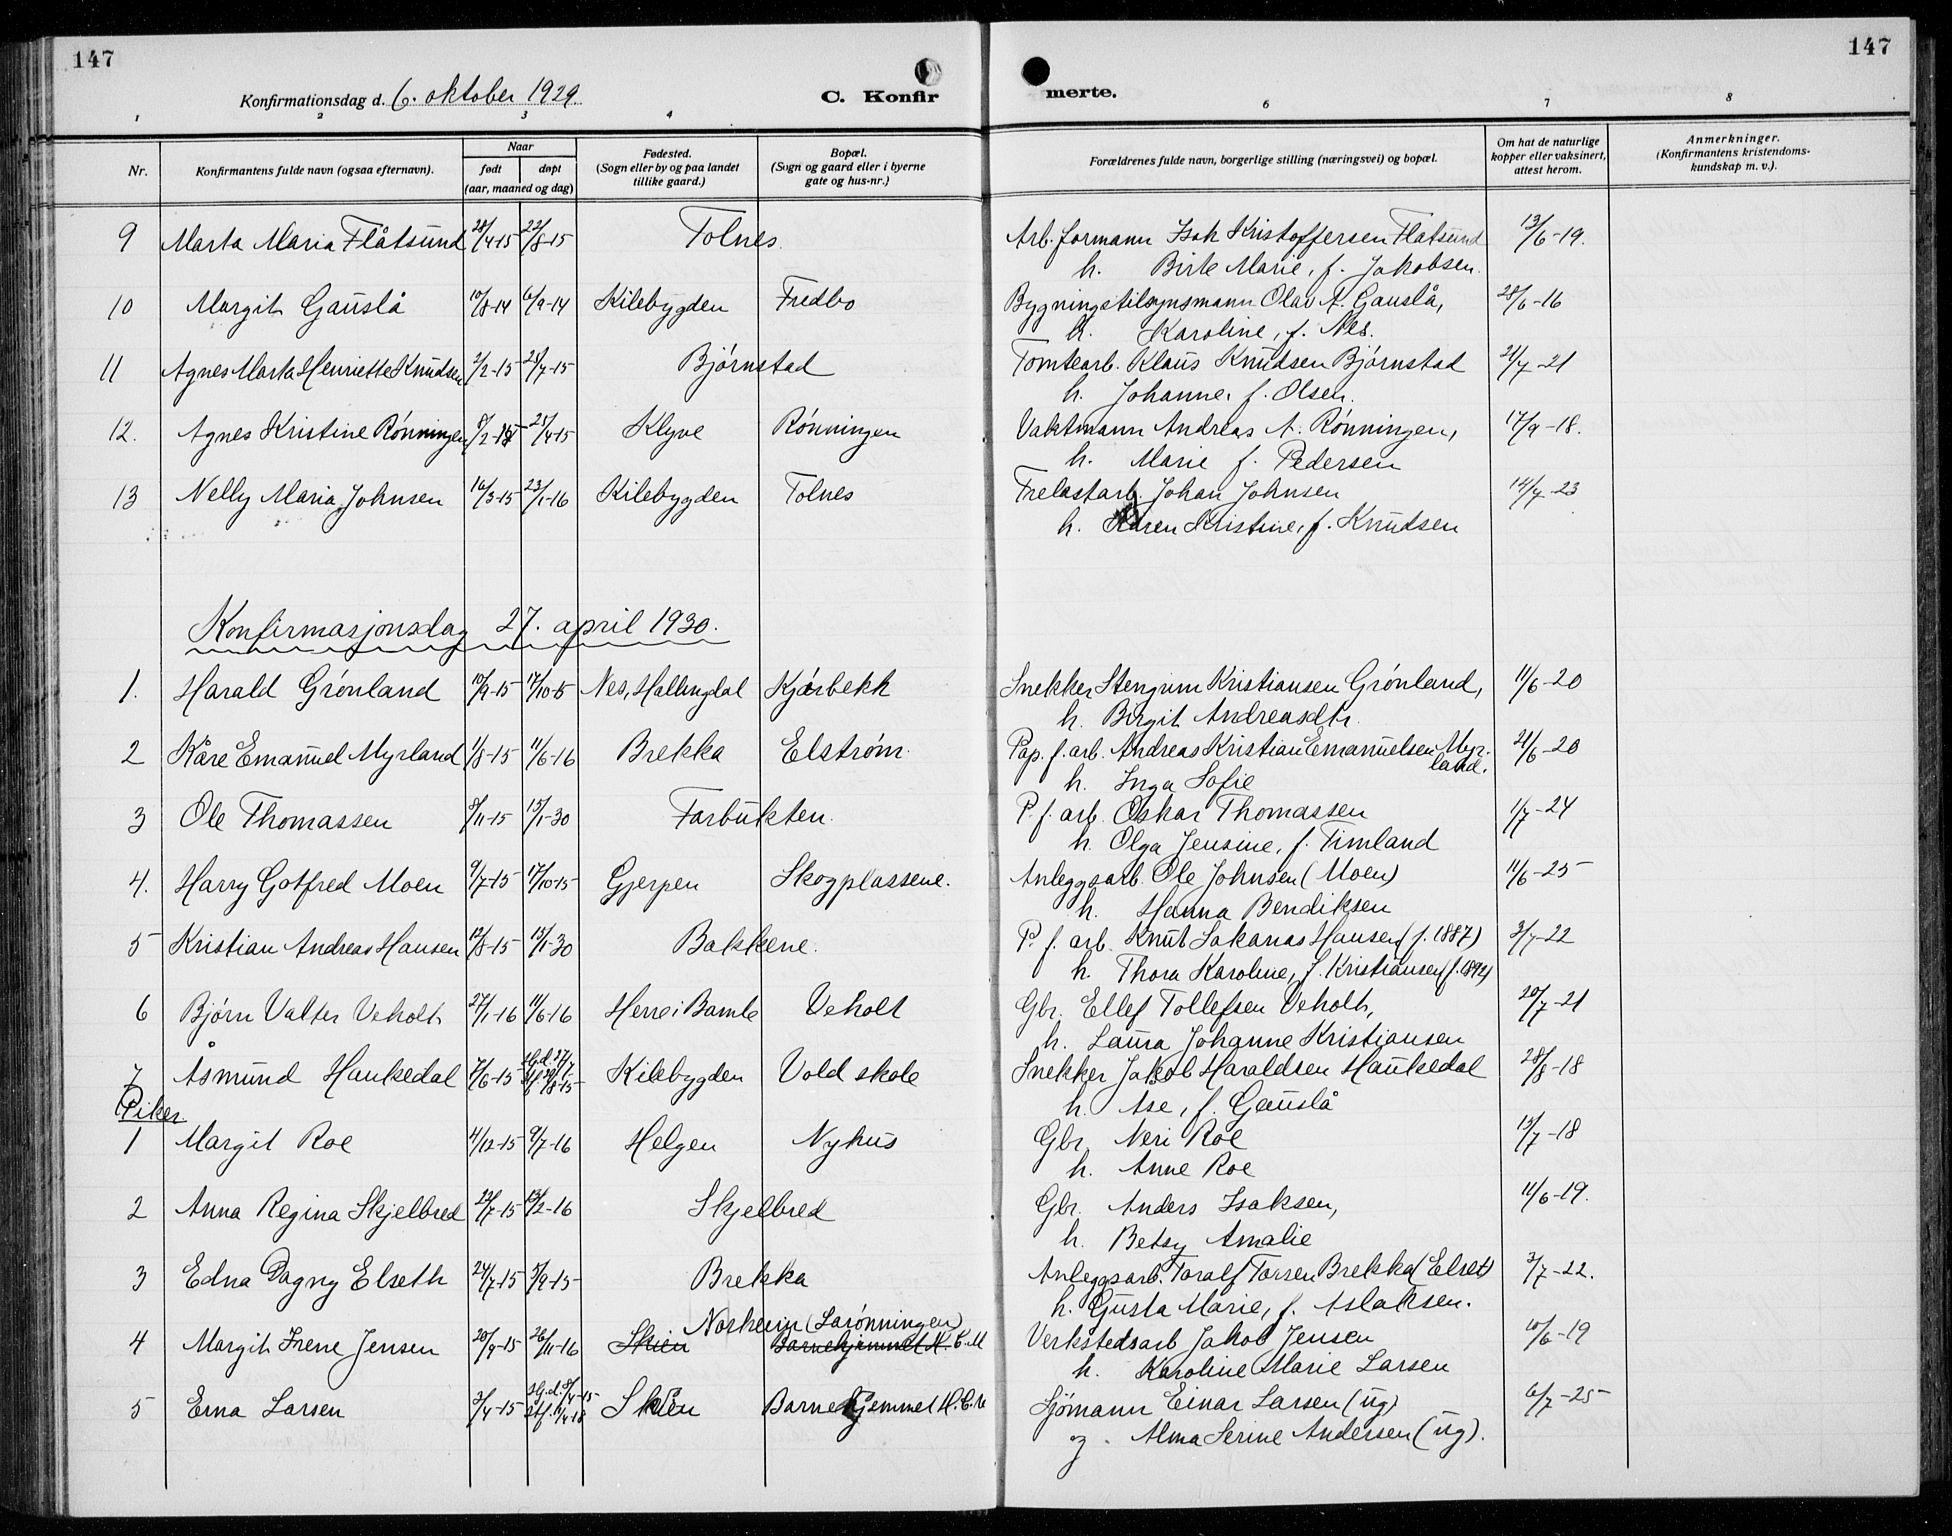 147
147
Konfirmationsdag d. 6. oktober 1929.
C. Konfir
merte.
1 2 3 4 6 7 8
Nr. Konfirmantens fulde navn (ogsaa efternavn). Naar født døpt (aar, maaned og dag) Fødested. (Sogn eller by og paa landet tillike gaard.) Bopæl. (Sogn og gaard eller i byerne gate og hus-nr.) Forældrenes fulde navn, borgerlige stilling (næringsvei) og bopæl. Om hat de naturlige kopper eller vaksinert, attest herom. Anmerkninger. (Konfirmantens kristendoms-kundskap m. v.).
9 Marta Maria Flåtsund 28/4-15 22/8-15 Tolnes. Arb.formann Isak Kristoffersen Flatsund 13/6-19.
h. Birte Marie, f. Jakobsen.
10 Margit Gauslå 10/8-14 6/9-14 Kilebygden Fredbo Bygningstilsynsmann Olav A. Gauslå, 28/6-16
h. Karoline, f. Nes.
11 Agnes Marta Henriette Knudsen 2/2-15 25/7-15 Bjørnstad Tomtearb. Klaus Knudsen Bjørnstad 21/7-21
h. Johanne, f. Olsen.
12. Agnes Kristine Rønningen 8/2-15 25/4-15 Klyve Rønningen Vaktmann Andreas A. Rønningen, 17/9-18.
h. Marie f. Pedersen
13 Nelly Maria Johnsen 16/3-15 23/1-16 Kilebygden Tolnes Trelastarb. Johan Johnsen 14/7-23
h. Karen Kristine, f. Knudsen
Konfirmasjonsdag 27. april 1930.
1. Harald Grønland 10/9-15 17/10-15 Nes, Hallingdal Kjørbekk Snekker Stengrim Kristiansen Grønland, 11/6-20
h. Birgit Andreasdtr.
2 Kåre Emanuel Myrland 1/8-15 11/6-16 Brekka Elstrøm. Pap. f. arb. Andreas Kristian Emanuelsen Myrland. 21/6-20
h. Inga Sofie
3 Ole Thomassen 8/11-15 15/1-30 Farbukten. P. f. arb. Oskar Thomassen 1/7-24
h. Olga Jensine, f. Timland
4. Harry Gotfred Moen 9/7-15 17/10-15 Gjerpen Skogplassene. Anleggsarb. Ole Johnsen (Moen) 11/6-25
h. Hanna Bendiksen
5 Kristian Andreas Hansen 12/8-15 15/1-30 Bakkene. P. f. arb. Knut Sakarias Hansen (f. 1887) 3/7-22
h. Thora Karoline, f. Kristiansen (f. 1892)
6 Bjørn Valter Veholt 27/1-16 11/6-16 Herre i Bamle Veholt Gbr. Ellef Tollefsen Veholt, 20/7-21
h. Laura Johanne Kristiansen
7 Åsmund Haukedal 7/6-15 Kilebygden Vold skole Snekker Jakob Haraldsen Haukedal 28/8-18
h. Åse, f. Gauslå
Piker.
1 Margit Roe 4/12-15 9/7-16 Helgen Nyhus Gbr. Neri Roe 13/7-18
h. Anne Roe
2 Anna Regina Skjelbred 29/7-15 13/2-16 Skjelbred Gbr. Anders Isaksen, 11/6-19.
h. Betsy Amalie
3 Edna Dagny Elseth 24/7-15 5/9-15 Brekka Anleggsarb. Toralf Torsen Brekka (Elset) 3/7-22.
h. Gusta Marie, f. Aslaksen.
Norheim (Larønningen)
4 Margit Irene Jensen 20/9-15 26/11-16 Skien Barnehjemmet H. C. M Verkstedsarb Jakob Jensen 10/6-19
h. Karoline Marie Larsen
5 Erna Larsen 3/4-15 Skien Barnehjemmet H. C. M Sjømann Einar Larsen (ug) 6/7-25
og Alma Serine Andersen (ug).